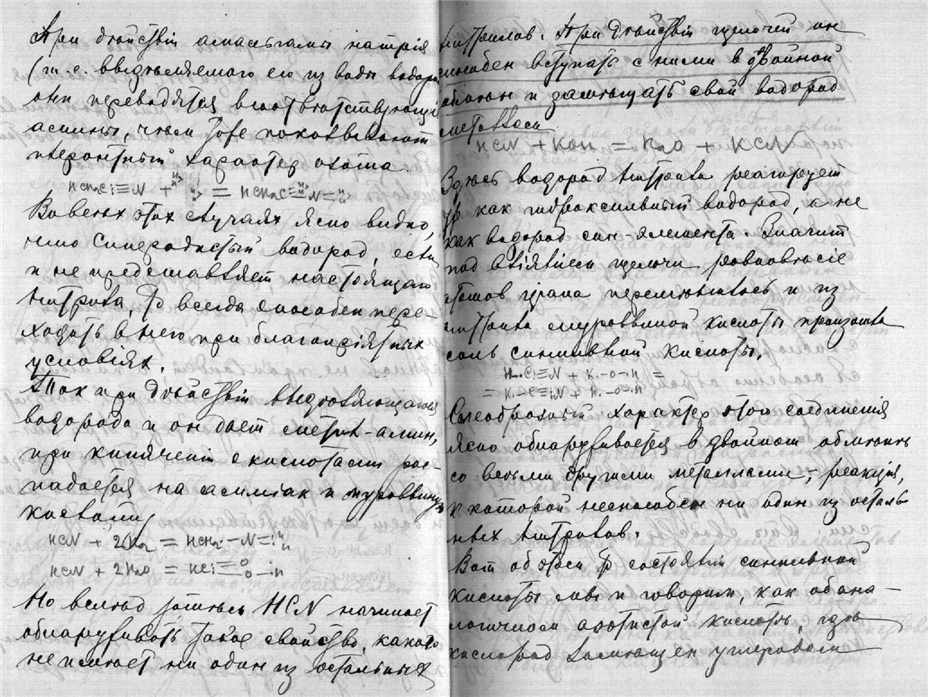 При дѣйствiи амальгамы натрiя
(т. е. выдѣляемаго его из воды водорода
они переводятся в соотвѣтствующiе
амины, чѣм тоже показывают
характер азота.
Во всѣх этих случаях ясно видно,
что Синеродистый водород, если
и не представляет настоящаго
нитрила, то всегда способен пере-
ходить в него при благопрiятных
условiях.
Так при дѣйствiи выдѣляющагося
водорода и он дает метил-амин,
при кипяченiи с кислотами рас-
падается на аммiак и муравьиную
кислоту
HCN + 2H₂ = HCH₂-N=
HCN + 2H₂O =
Но вслѣд затѣм HCN начинает
обнаруживать такое свойство, какого
не имѣет ни один из остальных
нитрилов. При дѣйствiи щелочей он
способен вступать с ними в двойной
обмѣн и замѣщать свой водород
металлом
HCN + KOH = K₂O + KCN
Здѣсь водород нитрила реагирует
уже как гидроксильный водород, а не
как водород ‑ элемента. Значит
под влiянiем щелочи равновѣсiе
атомов цiана перемѣнилось и из
нитрила муравьиной кислоты произошла
соль синильной кислоты.
H-C≡N + K-O-H =
= K-C≡N + H-O-H
Своеобразный характер этого соединенiя
ясно обнаруживается в двойном обмѣнѣ
со всѣми другими металлами, реакцiя,
к которой неспособен ни один из осталь-
ных нитрилов.
Вот об этом состоянiи синильной
кислоты мы и говорим, как об ана-
логичном азотистой кислотѣ, гдѣ
кислород замѣщен углеродом